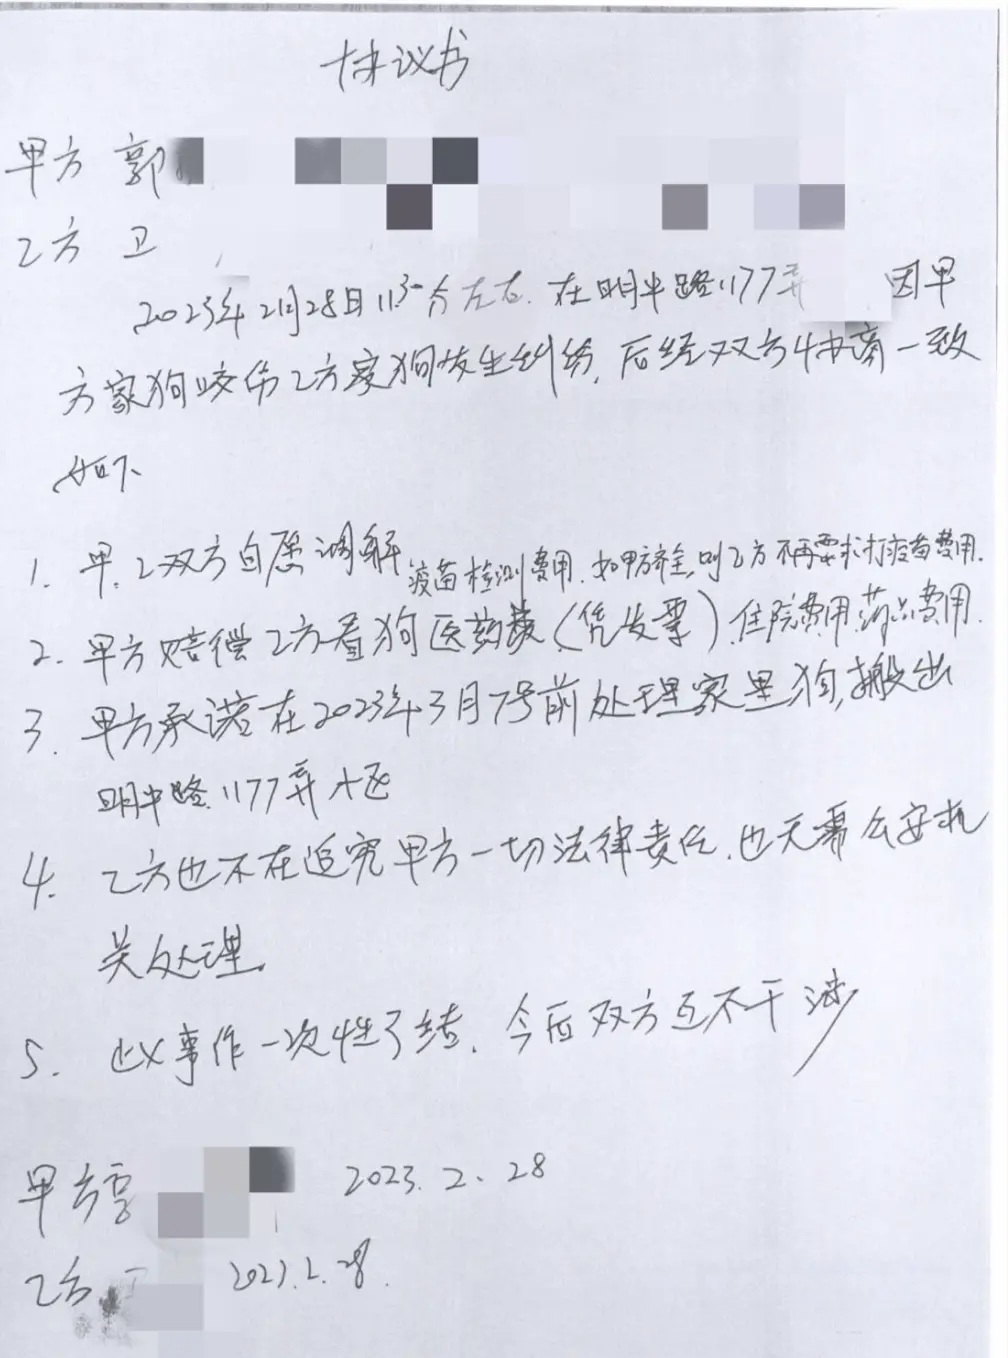 协议书
甲方 郭
乙方 卫
2023年2月28日11:30分左右.在明中路1177弄 因甲
方家狗咬伤乙方家狗发生纠纷,后经双方协商一致
如下
1. 甲、乙双方自愿调解
疫苗检测费用.如甲方齐全,则乙方不再要求打疫苗费用.
2. 甲方赔偿乙方看狗医药费(凭发票).住院费用.药品费用
3. 甲方承诺在2023年3月7号前处理家里狗,搬出
明中路1177弄小区
4. 乙方也不在追究甲方一切法律责任.也无需公安机
关处理.
5. 此事作一次性了结.今后双方互不干涉
甲方 2023.2.28
乙方 2023.2.28.